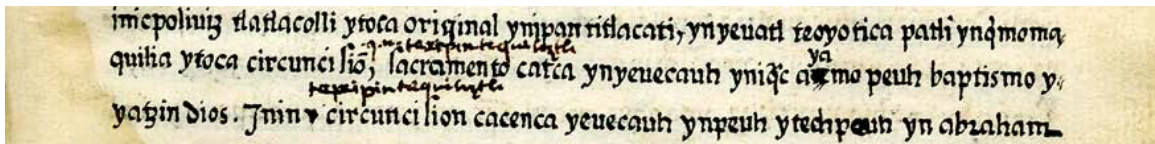 inicpoliuiz tlatlacolli ytoca original ynipan titlacati, ynyeuatl teoyotica patli ynq̃moma,
texipintequiliztli
ya
quilia ytoca circuncisiõ, sacramento catca ynyeuecauh yniq̃c amo peuh baptismo y
texipintequiliztli
yatzin Dios. Jnin circuncision cacenca yeuecauh ynpeuh ytechpeuh yn abraham